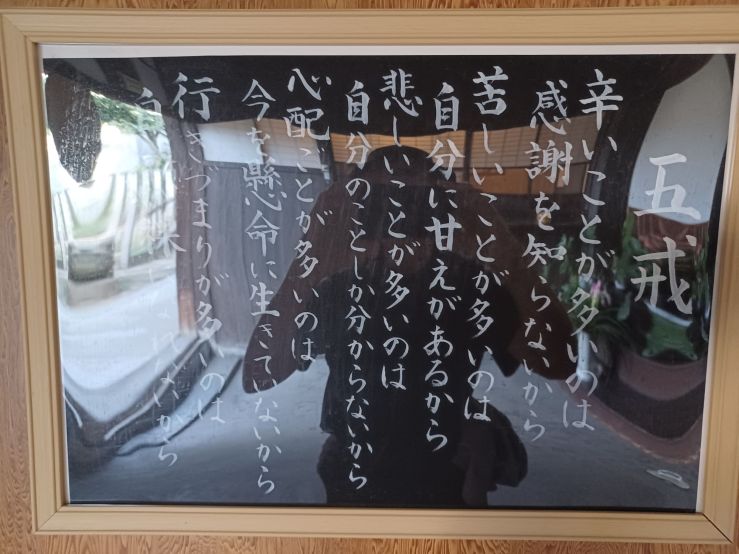 五戒
辛いことが多いのは
感謝を知らないから
苦しいことが多いのは
自分に甘えがあるから
悲しいことが多いのは
自分のことしか分からないから
心配ごとが多いのは
今を懸命に生きていないから
行きづまりが多いのは
自分が 来になれないから